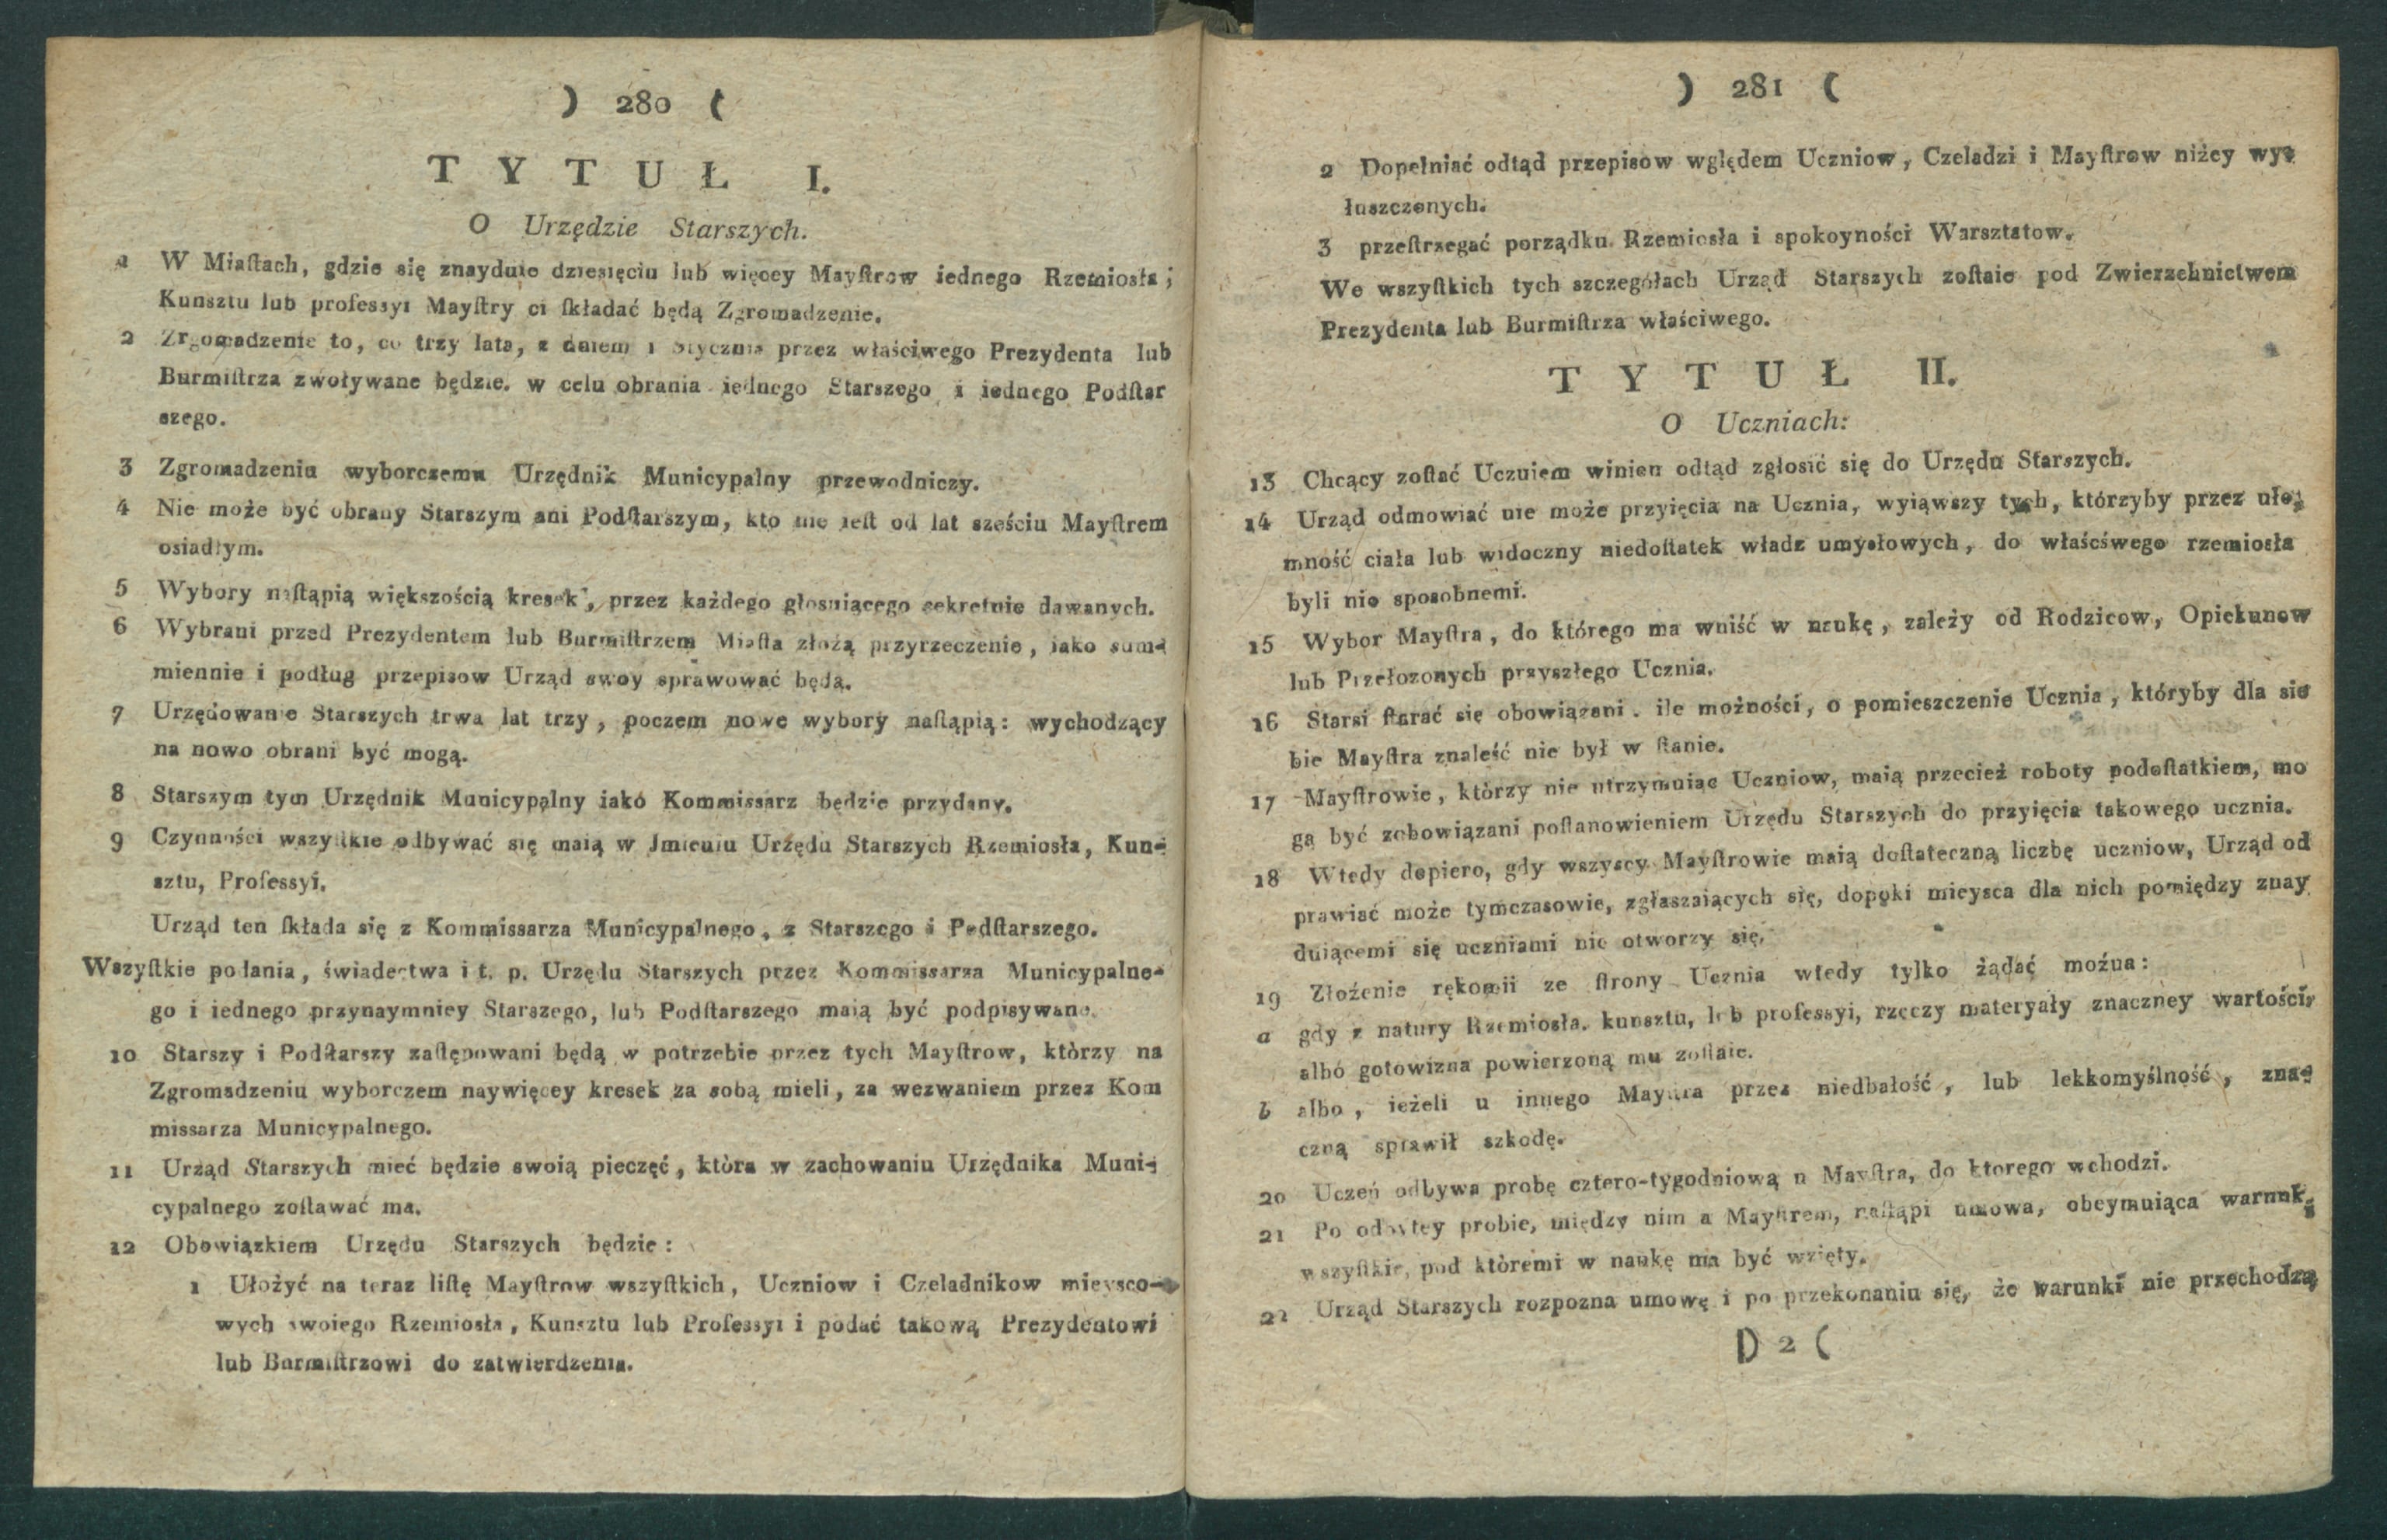 ) 280 (
TYTUŁ I.
O Urzędzie Starszych.
1 W Miaſtach, gdzie się znayduie dziesięciu lub więcey Mayſtrow iednego Rzemiosła;
Kunsztu lub professyi Mayſtry ci ſkładać będą Zgromadzenie.
2 Zrgomadzenie to, co trzy lata, z dniem 1 Stycznia przez właściwego Prezydenta lub
Burmiſtrza zwoływane będzie. w celu obrania iednego Starszego i iednego Podſtar
szego.
3 Zgromadzeniu wyborczemu Urzędnik Municypalny przewodniczy.
4 Nie może być obrany Starszym ani Podſtarszym, kto nie ieſt od lat sześciu Mayſtrem
osiadłym.
5 Wybory naſtąpią większością kresek, przez każdego głosuiącego sekretnie dawanych.
6 Wybrani przed Prezydentem lub Burmiſtrzem Miaſta złożą przyrzeczenie, iako sum-
miennie i podług przepisow Urząd swoy sprawować będą.
7 Urzędowanie Starszych trwa lat trzy, poczem nowe wybory naſtąpią: wychodzący
na nowo obrani być mogą.
8 Starszym tym Urzędnik Municypalny iako Kommissarz będzie przydany.
9 Czynności wszyſtkie odbywać się maią w Jmieniu Urzędu Starszych Rzemiosła, Kun-
sztu, Professyi.
Urząd ten ſkłada się z Kommissarza Municypalnego, z Starszego i Podſtarszego.
Wszyſtkie podania, świadectwa i t. p. Urzędu Starszych przez Kommissarza Municypalne-
go i iednego przynaymniey Starszego, lub Podſtarszego maią być podpisywane.
10 Starszy i Podſtarszy zaſtępowani będą w potrzebie przez tych Mayſtrow, którzy na
Zgromadzeniu wyborczem naywięcey kresek za sobą mieli, za wezwaniem przez Kom
missarza Municypalnego.
11 Urząd Starszych mieć będzie swoią pieczęć, która w zachowaniu Urzędnika Muni-
cypalnego zoſtawać ma.
12 Obowiązkiem Urzędu Starszych będzie:
1 Ułożyć na teraz liſtę Mayſtrow wszyſtkich, Uczniow i Czeladnikow mieysco-
wych swoiego Rzemiosła, Kunsztu lub Professyi i podać takową Prezydentowi
lub Burmiſtrzowi do zatwierdzenia.
) 281 (
2 Dopełniać odtąd przepisow względem Uczniow, Czeladzi i Mayſtrow niżey wy-
łuszczonych.
3 przeſtrzegać porządku Rzemiosła i spokoyności Warsztatow.
We wszyſtkich tych szczegółach Urząd Starszych zoſtaie pod Zwierzchnictwem
Prezydenta lub Burmiſtrza właściwego.
TYTUŁ II.
O Uczniach:
13 Chcący zoſtać Uczniem winien odtąd zgłosić się do Urzędu Starszych.
14 Urząd odmowiać nie może przyięcia na Ucznia, wyiąwszy tych, którzyby przez uło-
mność ciała lub widoczny niedoſtatek władz umysłowych, do właścśwego rzemiosła
byli nie sposobnemi.
15 Wybor Mayſtra, do którego ma wniść w naukę, zależy od Rodzicow, Opiekunow
lub Przełozonych przyszłego Ucznia.
16 Starsi ſtarać się obowiązani. ile możności, o pomieszczenie Ucznia, któryby dla sie
bie Mayſtra znaleść nie był w ſtanie.
17 Mayſtrowie, którzy nie utrzymuiąc Uczniow, maią przecież roboty podoſtatkiem, mo
gą być zobowiązani poſtanowieniem Urzędu Starszych do przyięcia takowego ucznia.
18 Wtedy dopiero, gdy wszyscy Mayſtrowie maią doſtateczną liczbę uczniow, Urząd od
prawiać może tymczasowie, zgłaszaiących się, dopóki mieysca dla nich pomiędzy znay
duiącemi się uczniami nie otworzy się.
19 Złożenie rękomii ze ſtrony Ucznia wtedy tylko żądać można:
a gdy z natury Rzemiosła. kunsztu, lub professyi, rzeczy materyały znaczney wartości,
albó gotowizna powierzoną mu zoſtaie.
b albo, ieżeli u innego Mayſtra przez niedbałość, lub lekkomyślność, zna-
czną sprawił szkodę.
20 Uczeń odbywa probę cztero-tygodniową u Mayſtra, do ktorego wchodzi.
21 Po odbytey probie, między nim a Mayſtrem, naſtąpi umowa, obeymuiąca warunk-
wszyſtkie, pod któremi w naukę ma być wzięty.
22 Urząd Starszych rozpozna umowę i po przekonaniu się, że warunki nie przechodzą
D 2 (